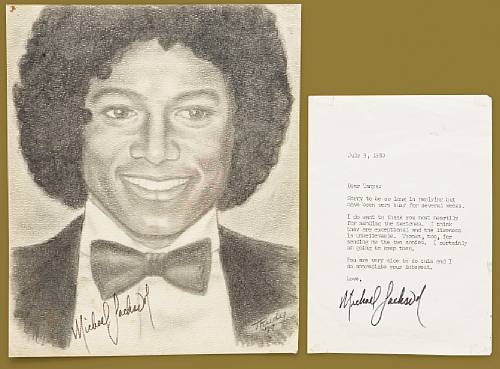 Michael Jackson
July 9, 1980
Dear
Sorry to be so long in replying but
have been very busy for several weeks.
I do want to thank you most heartily
for sending the sketches. I think
they are exceptional and the likeness
is unbelievable. Thanks, too, for
sending me the two copies. I certainly
am going to keep them.
You are very nice to do this and I
do appreciate your interest.
Love,
Michael Jackson